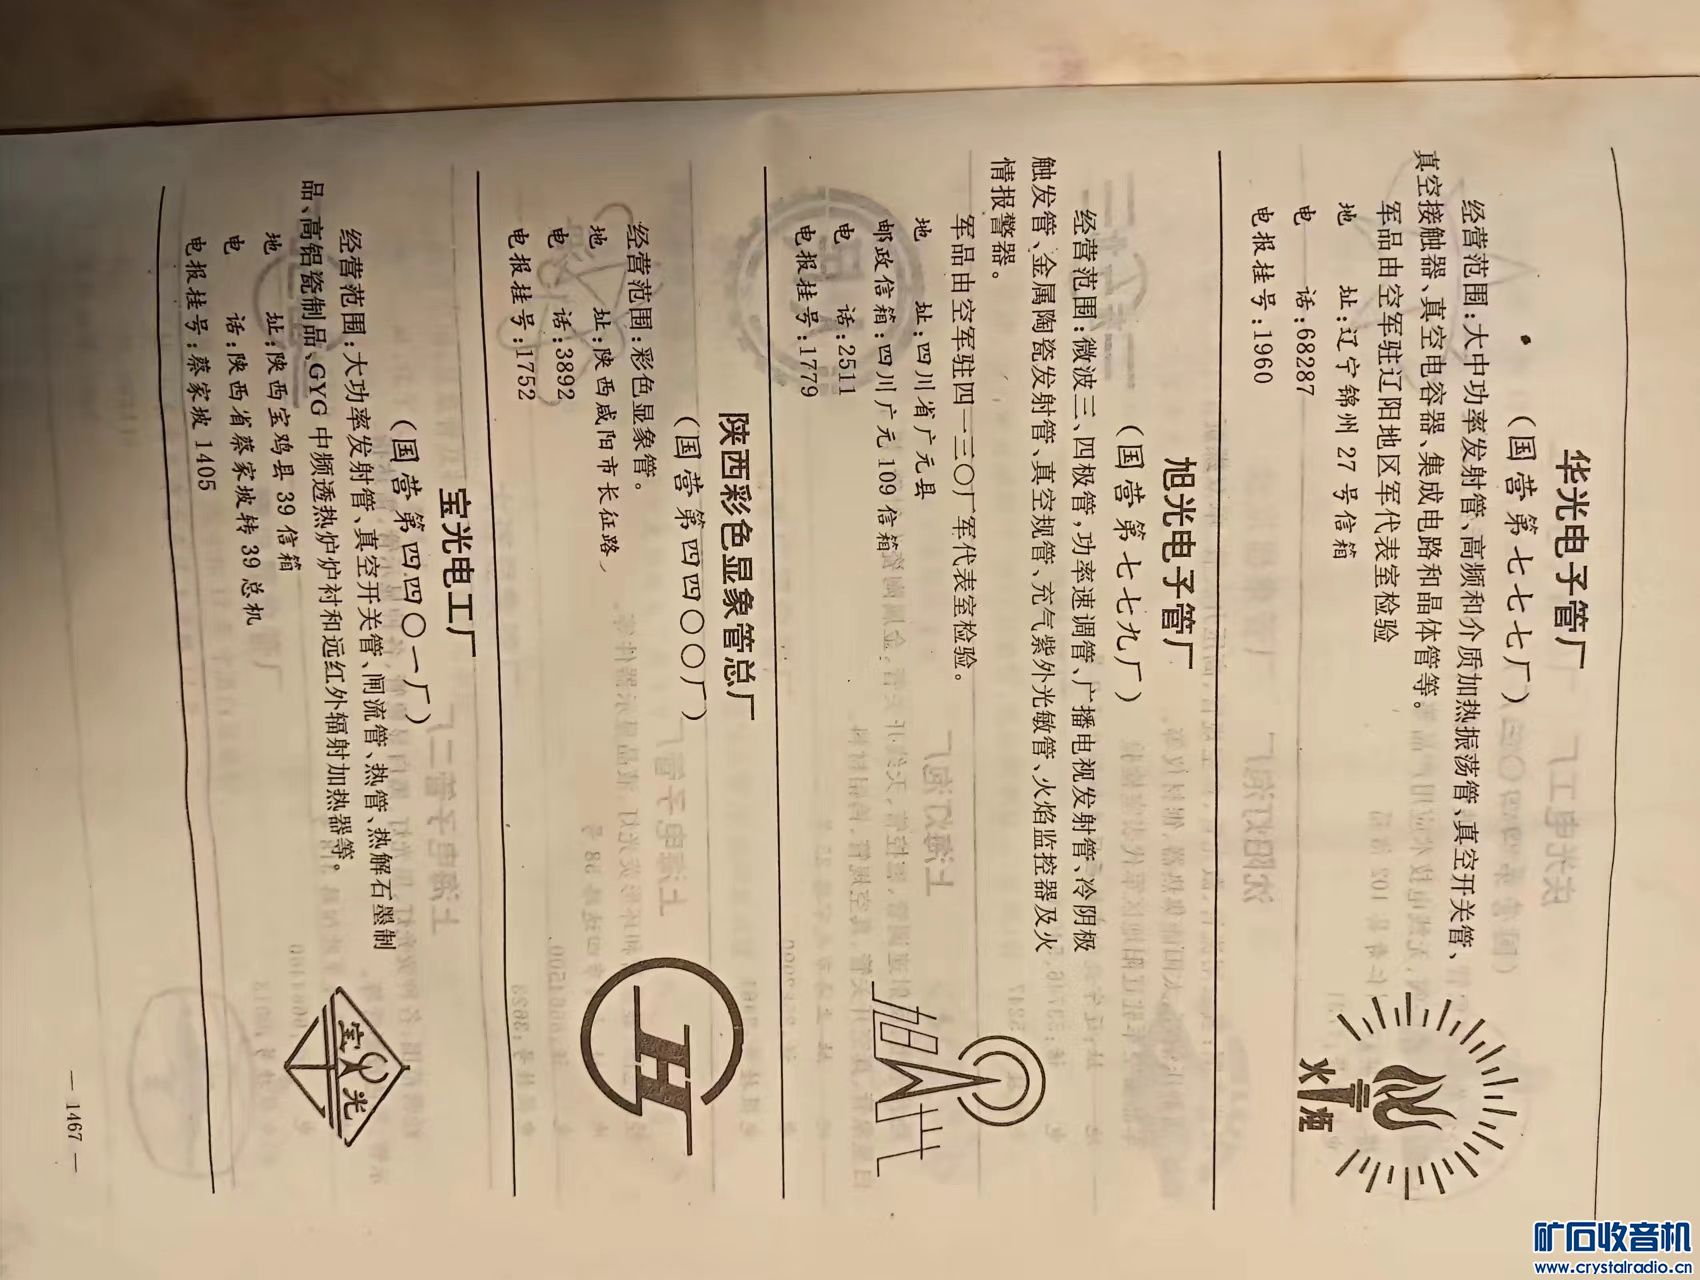 华光电子管厂
(国营第七七七厂)
经营范围:大中功率发射管、高频和介质加热振荡管、真空开关管、
真空接触器、真空电容器、集成电路和晶体管等。
军品由空军驻辽阳地区军代表室检验
地 址:辽宁锦州27号信箱
电 话:68287
电报挂号:1960
火炬
旭光电子管厂
(国营第七七九厂)
经营范围:微波三、四极管,功率速调管、广播电视发射管、冷阴极
触发管、金属陶瓷发射管、真空规管、充气紫外光敏管、火焰监控器及火
情报警器。
军品由空军驻四一三〇厂军代表室检验。
地 址:四川省广元县
邮政信箱:四川广元109信箱
电 话:2511
电报挂号:1779
旭光
陕西彩色显象管总厂
(国营第四四〇〇厂)
经营范围:彩色显象管。
地 址:陕西咸阳市长征路
电 话:3892
电报挂号:1752
宝光电工厂
(国营第四四〇一厂)
经营范围:大功率发射管、真空开关管、闸流管、热管、热解石墨制
品、高铝瓷制品、GYG中频透热炉炉衬和远红外辐射加热器等。
地 址:陕西宝鸡县39信箱
电 话:陕西省蔡家坡转39总机
电报挂号:蔡家坡1405
宝光
— 1467 —
矿石收音机
www.crystalradio.cn